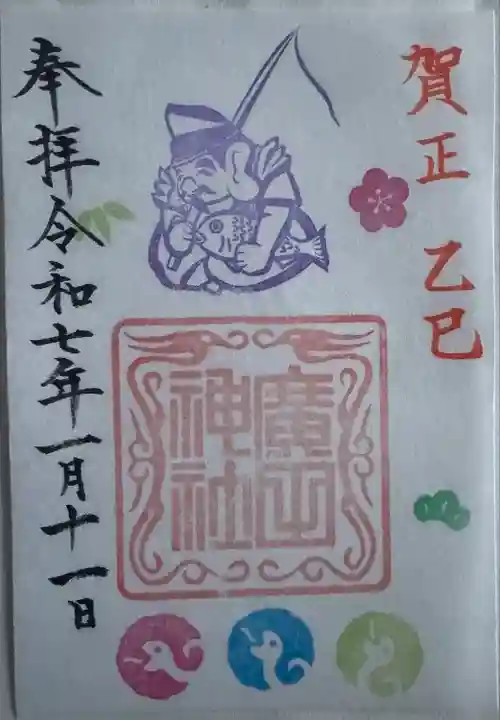 賀正 乙巳
廣田
神社
奉拝 令和七年一月十一日